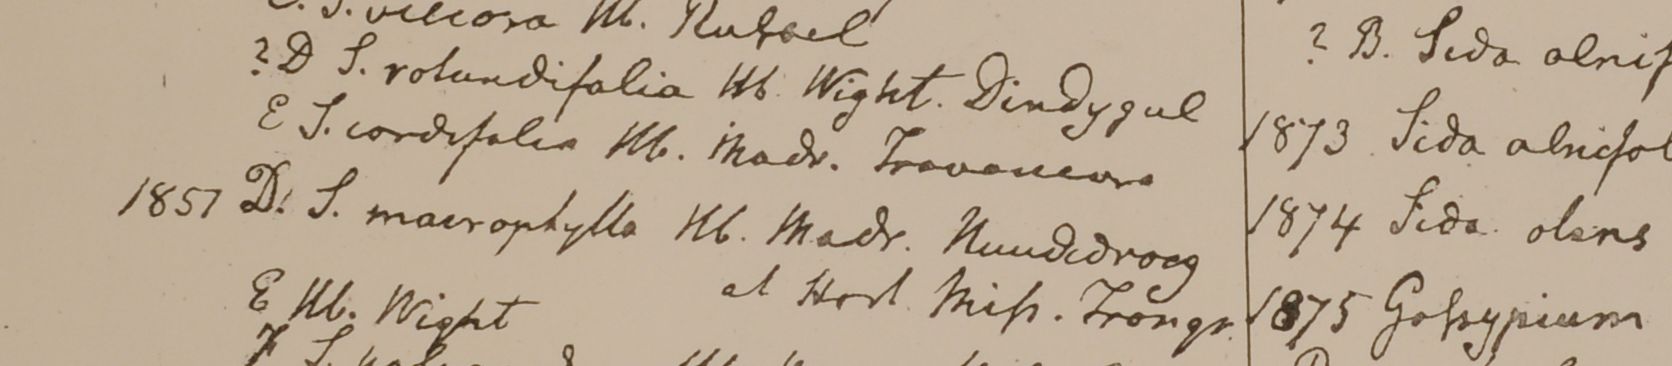 S. viscosa Hb. Russel
? D S. rotundifolia Hb Wight. Dindygul
E S. cordifolia Hb. Madr. Travancora
1857 D. S. macrophylla Hb. Madr. Nundidroog
et Hort Miss. Tranqr.
E Hb. Wight
F S.
? B. Sida alnif
1873 Sida alnifol
1874 Sida olens
1875 Gossypium